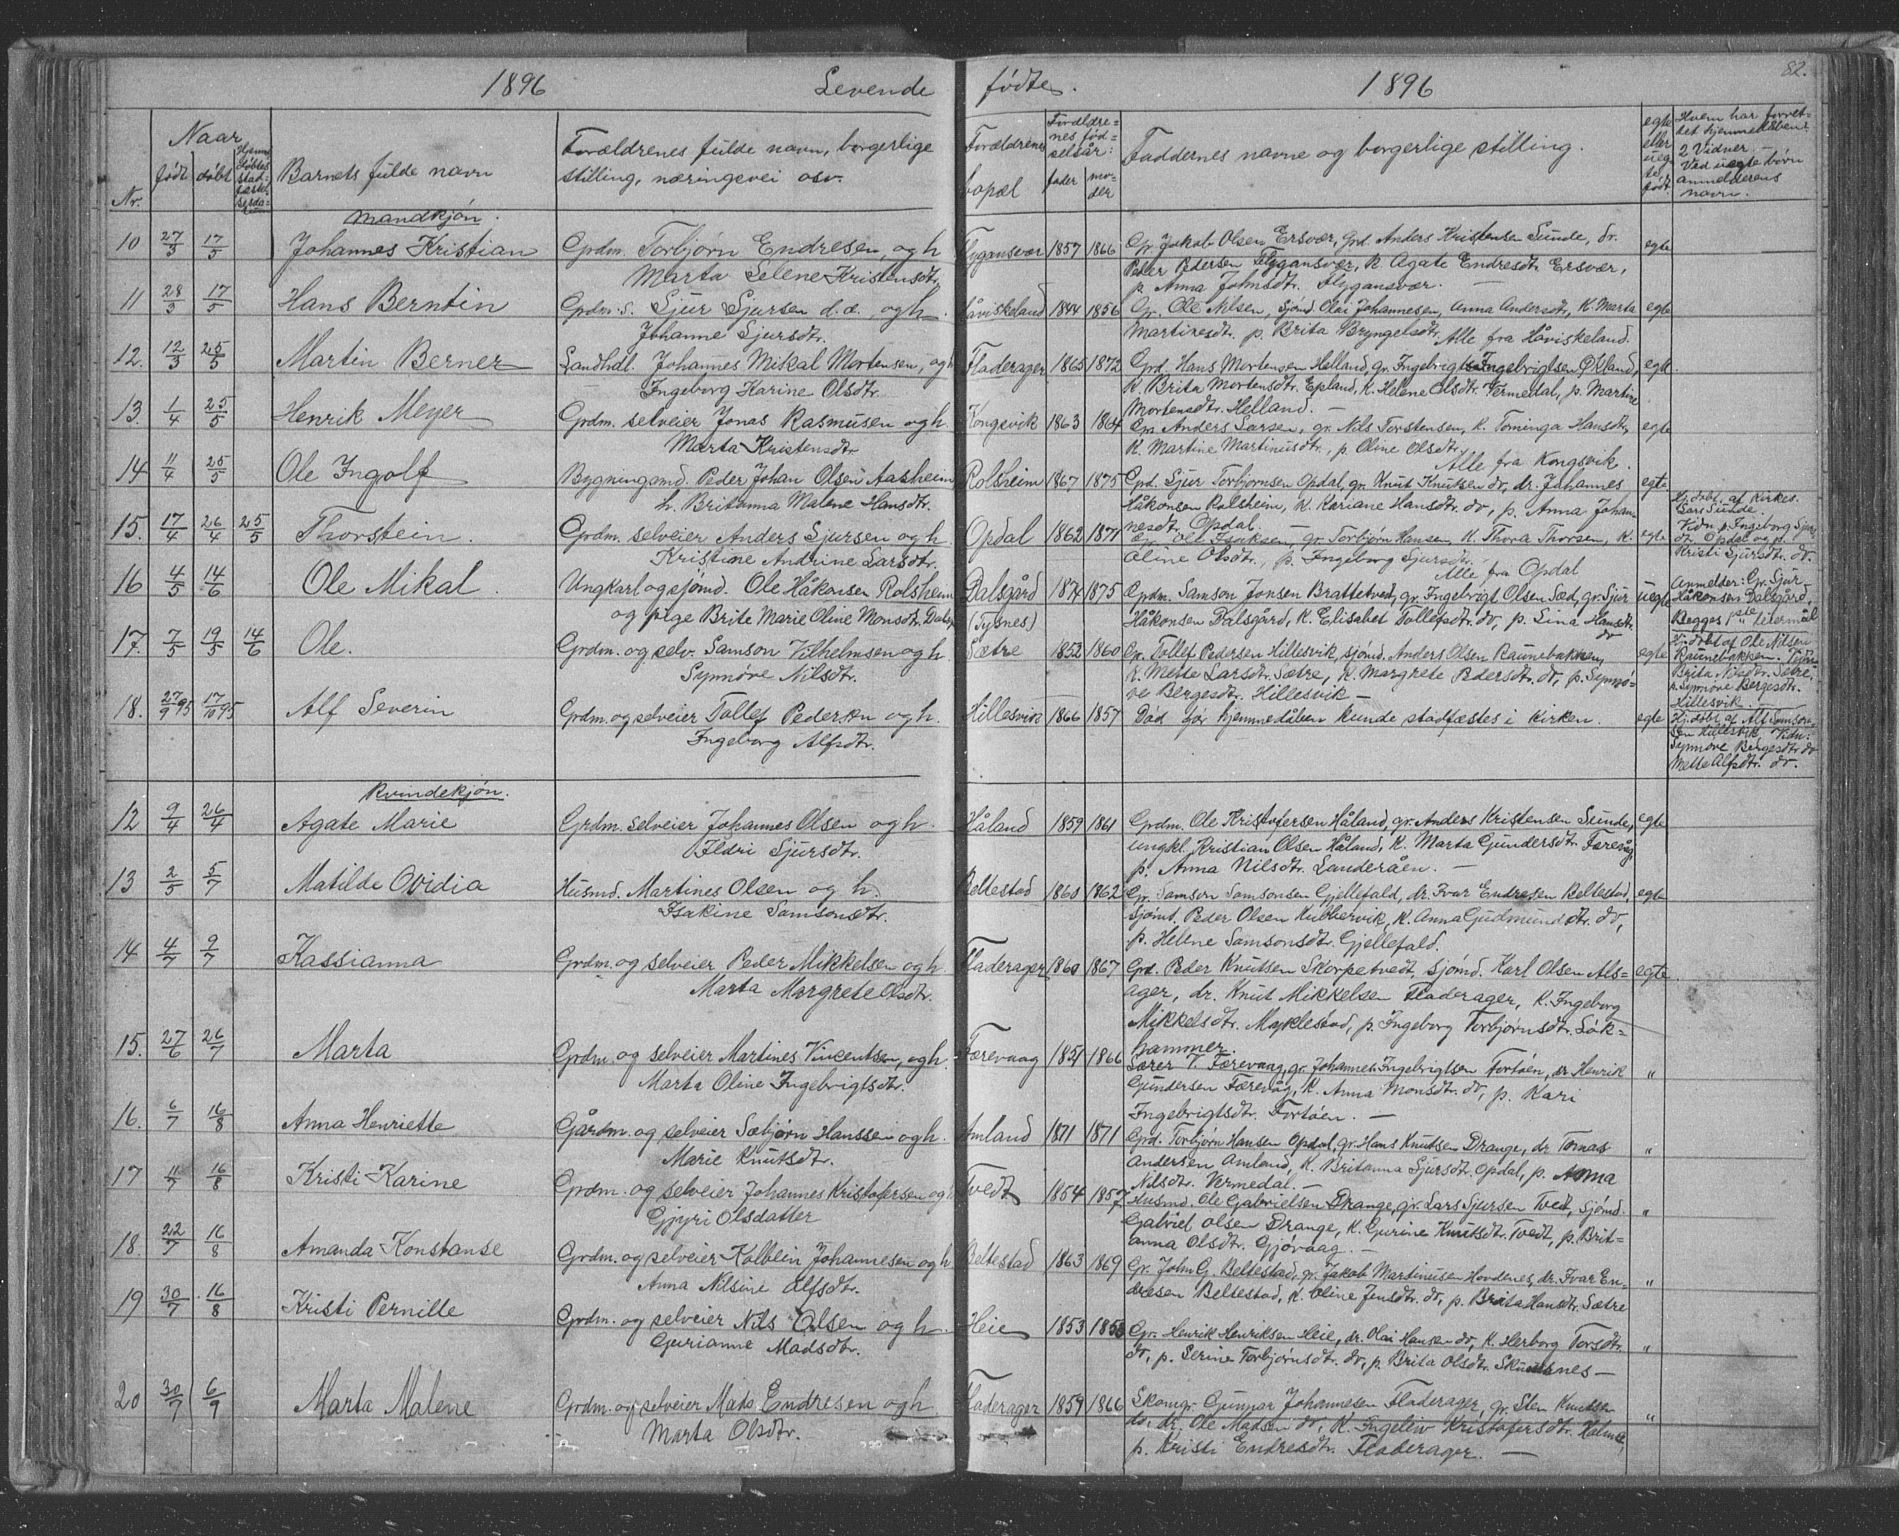 1896 Levende fødte. 1896 82.
Nr. Naar født døbt Barnets fulde navn Forældrenes fulde navn, borgerlige stilling, næringsvei osv. Forældrenes bopæl Forældrenes fødselsår: fader moder Faddernes navne og borgerlige stilling. egte eller uegte født. Hvem har forrettet hjemmedåben? 2 Vidner — Ved uegte børn anmelderens navn.
Mandkjøn.
10 27/3 17/5 Johannes Kristian Grdm. Torbjørn Endresen, og h. Flygansvær 1857 1866 Gr. Jakob Olsen Ersvær, Grd. Anders Kristensen Sunde, dr. egte
Marta Selene Kristensdtr. Peder Pedersen Flygansvær, k. Agate Endresdtr. Ersvær,
p. Anna Johnsdt. Flygansvær. —
11 28/3 17/5 Hans Berntin Grdm. s. Sjur Sjursen d.æ., og h. Håviskeland 1844 1856 Gr. Ole Nilsen, Sjømd. Olai Johannesen, Anna Andersdt, K. Marta egte
Johanne Sjursdtr. Martinesdt. p. Brita Bryngelsdtr. Alle fra Håviskeland.
12. 12/3 25/5 Martin Berner Landhdl. Johannes Mikal Mortensen, og h. Fladerager 1865 1872 Grd. Hans Mortensen Helland, gr. Ingebrigt Ingebrigtsen, Økland, egte
Ingeborg Karine Olsdtr. K. Brita Mortensdtr. Epland, k. Helene Olsdtr. Vermedal, p. Martine
Mortensdtr. Helland. —
13. 1/4 25/5 Henrik Meyer Grdm. selveier Jonas Rasmusen og h. Kongsvik 1863 1864 Gr. Anders Larsen, gr. Nils Torstensen, K. Tominga Hansdtr, egte
Marta Kristensdtr K. Martine Martinusdtr., p. Oline Olsdtr.
Alle fra Kongsvik.
14 11/4 25/5 Ole Ingolf Bygningsmd. Peder Johan Olsen Aasheim Rolsheim 1867 1875 Grd. Sjur Torbjørnsen Opdal, gr. Knut Knutsen do, dr. Johannes egte
h. Britanna Malene Hansdtr. Håkonsen Rolsheim, K. Kariane Hansdtr. do, p. Anna Johannesdt. Opdal.
15. 17/4 26/4 25/5 Thorstein. Grdm. selveier Anders Sjursen og h. Opdal 1862 1871 Gr. Ole Isaksen, gr. Torbjørn Hansen, K. Thora Thorsen, K. egte Hj. døbt af Kirkes. Lars Sunde. Vidn. p. Ingeborg Sjursdt. Opdal og p. Kristi Sjursdtr. do.
Kristine Andrine Larsdtr. Oline Olsdtr., p. Ingeborg Sjursdtr.
Alle fra Opdal
16 4/5 14/6 Ole Mikal. Ungkarl og sjømd. Ole Håkonsen Rolsheim Dalsgård 1874 1875 Grdm. Samson Jonsen Brattetved, gr. Ingebrigt Olsen Sæd, gr. Sjur uegte Anmelder: Gr. Sjur Håkonsen Dalsgård. Begges 1ste leiermål
og pige Brite Marie Oline Monsdtr. Dalsg. (Tysnes) Håkonsen Dalsgård, K. Elisabet Tollefsdt. do, p. Lina Hansdtr. do
17. 7/5 19/5 14/6 Ole. Grdm. og selv. Samson Vilhelmsen og h. Sætre 1852 1860 Gr. Tollef Pedersen Hillesvik, sjømd. Anders Olsen Raunebakken, egte Hj. døbt af Ole Nilsen Raunebakken. Brita Nilsdt. Sætre, p. Synnøve Bergesdtr. Hillesvik.
Synnøve Nilsdtr. K. Mette Larsdt. Sætre, K. Margrete Pedersdtr. do, p. Synnøve Bergesdt. Hillesvik —
18. 27/9 95 17/10 95 Alf Severin Grdm. og selveier Tollef Pedersen og h. Hillesvik 1866 1857 Død før hjemmedåben kunde stadfæstes i kirken. egte Hj. døbt af Alf Samsonsen Hillesvik, Vidn. Synnøve Bergesdtr. do Mette Alfsdtr. do.
Ingeborg Alfsdtr.
Kvindekjøn.
12 9/4 26/4 Agate Marie Grdm. selveier Johannes Olsen og h. Håland 1859 1861 Grdm. Ole Kristofersen Håland, gr. Anders Kristensen Sunde, egte
Eldri Sjursdtr. ungkl. Kristian Olsen Håland, K. Marta Gundersdt. Færevåg,
p. Anna Nilsdt. Landeråen. —
13 2/5 5/7 Matilde Ovidia Husmd. Martines Olsen og h. Beltestad 1860 1862 Gr. Samson Samsonsen Gjellefald, dr. Ivar Endresen Beltestad, egte
Isakine Samsonsdtr. Sjømd. Peder Olsen Kubbervik, K. Anna Gudmundsdtr. do,
p. Helene Samsonsdt. Gjellefald.
14 4/7 9/7 Kassianna Grdm. og selveier Peder Mikkelsen og h. Fladerager 1860 1867 Grd. Peder Knutsen Skorpetvedt, sjømd. Karl Olsen Alsager, egte
Marta Margrete Olsdtr. dr. Knut Mikkelsen Fladerager, K. Ingeborg
Mikkelsdtr. Myklestad, p. Ingeborg Torbjørnsdtr. Søkhammer.
15. 27/6 26/7 Marta Grdm. og selveier Martines Vincentsen, og h. Færevaag 1851 1866 Lærer V. Færevaag, gr. Johannes Ingebrigtsen Fortøen, dr. Henrik "
Marta Oline Ingebrigtsdtr. Gundersen Færevåg, K. Anna Monsdt. do, p. Kari
Ingebrigtsdt. Fortøen. —
16. 6/7 16/8 Anna Henriette Gårdm. og selveier Sæbjørn Hanssen og h. Amland 1871 1871 Grd. Torbjørn Hansen Opdal, gr. Hans Knutsen Drange, dr Tomas "
Marie Knutsdtr. Andersen Amland, K. Britanna Sjursdt. Opdal, p. Anna
Nilsdt. Vermedal. —
17 11/7 16/8 Kristi Karine Grdm. og selveier Johannes Kristofersen og h. Tvedt 1854 1857 Husmd. Ole Gabrielsen Drange, gr. Lars Sjursen Tvedt, Sjømd. "
Gjyri Olsdatter Gabriel Olsen Drange, K. Gurine Knutsdt. Tvedt, p. Britanna Olsdt. Gjøvaag. —
18. 22/7 16/8 Amanda Konstanse Grdm. og selveier Kolbein Johannesen og h. Beltestad 1863 1869 Gr. John G. Beltestad, gr. Jakob Martinusen Hovdenes, dr. Ivar Endresen "
Anna Nilsine Alfsdtr. Beltestad, K. Oline Jensdtr. do, p. Brita Hansdtr. Sætre
19 30/7 16/8 Kristi Pernille Grdm. og selveier Nils Olsen og h. Heie 1853 Gr. Henrik Henriksen Heie, dr. Olai Hansen do, K. Herborg Torsdtr. "
Gurianne Madsdtr. do, p. Serine Torbjørnsdt. do, p. Brita Olsdt. —
20 30/7 6/9 Marta Malene Grdm. og selveier Mats Endresen og h. Fladerager 1859 1866 Skomgr. Gunnar Johannesen Fladerager, gr. Sten Knutsen "
Marta Olsdtr. do, dr. Ole Madsen do, K. Ingeliv Kristofersdt.
p. Kristi Endresdt. Fladerager. —